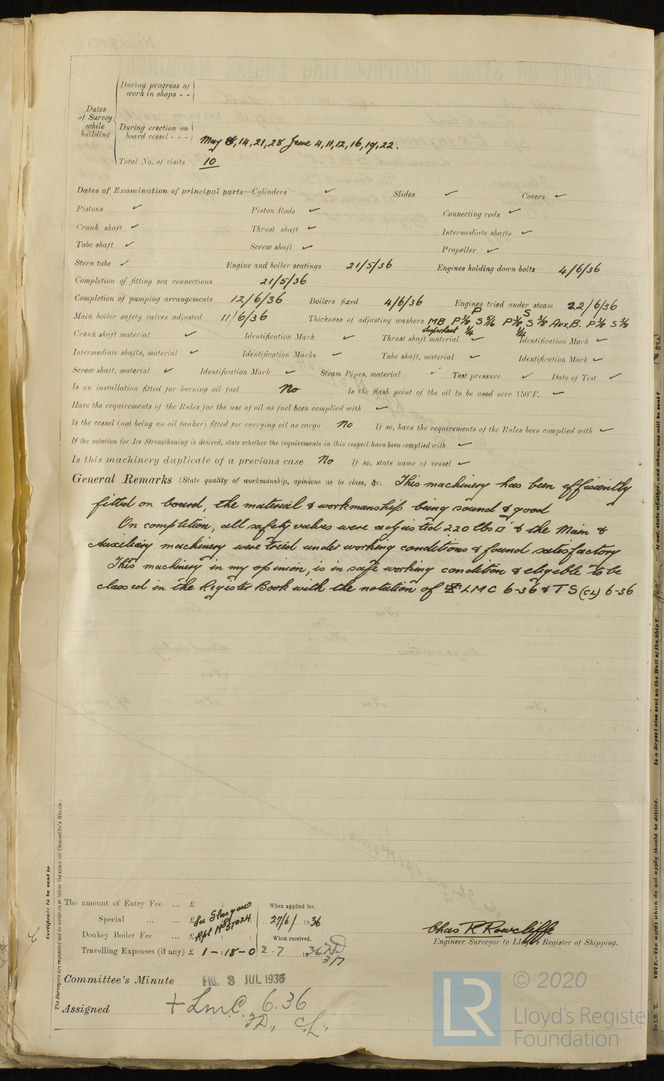 During progress of
work in shops - -
Dates
of Survey
while
building
During erection on
board vessel - - -
May 8, 14, 21, 28 June 4, 11, 12, 16, 19, 22.
Total No. of visits 10
Dates of Examination of principal parts—Cylinders ✓ Slides ✓ Covers ✓
Pistons ✓ Piston Rods ✓ Connecting rods ✓
Crank shaft ✓ Thrust shaft ✓ Intermediate shafts ✓
Tube shaft ✓ Screw shaft ✓ Propeller ✓
Stern tube ✓ Engine and boiler seatings 21/5/36 Engines holding down bolts 4/6/36
Completion of fitting sea connections 21/5/36
Completion of pumping arrangements 12/6/36 Boilers fixed 4/6/36 Engines tried under steam 22/6/36
Main boiler safety valves adjusted 11/6/36 Thickness of adjusting washers MB P S P S Aux B. P S
Crank shaft material ✓ Identification Mark ✓ Thrust shaft material ✓ Identification Mark ✓
Intermediate shafts, material ✓ Identification Marks ✓ Tube shaft, material ✓ Identification Mark ✓
Screw shaft, material ✓ Identification Mark ✓ Steam Pipes, material ✓ Test pressure ✓ Date of Test ✓
Is an installation fitted for burning oil fuel No Is the flash point of the oil to be used over 150°F. ✓
Have the requirements of the Rules for the use of oil as fuel been complied with ✓
Is the vessel (not being an oil tanker) fitted for carrying oil as cargo No If so, have the requirements of the Rules been complied with ✓
If the notation for Ice Strengthening is desired, state whether the requirements in this respect have been complied with ✓
Is this machinery duplicate of a previous case No If so, state name of vessel ✓
General Remarks (State quality of workmanship, opinions as to class, &c. This machinery has been efficiently
fitted on board, the material & workmanship being sound & good
On completion, all safety valves were adjusted 220 lbs □" & the Main &
Auxiliary machinery were tried under working conditions & found satisfactory
This machinery in my opinion, is in safe working condition & eligible to be
classed in the Register Book with the notation of ✠ LMC 6-36 & TS (CL) 6-36
The amount of Entry Fee ... £
Special ... ... £ See Glasgow
Donkey Boiler Fee ... £ Rpt No 57024
Travelling Expenses (if any) £ 1-:18-0
When applied for,
27/6/1936
When received,
2.7 1936
3/7
Chas R Rowcliffe
Engineer Surveyor to Lloyd's Register of Shipping.
Committee's Minute FRI. 3 JUL 1936
Assigned + LMC 6.36
FD, CL.
Certificate to be sent to
The Surveyors are requested not to write on or below the space for Committee's Minute.
© 2020
LR
Lloyd's Register
Foundation